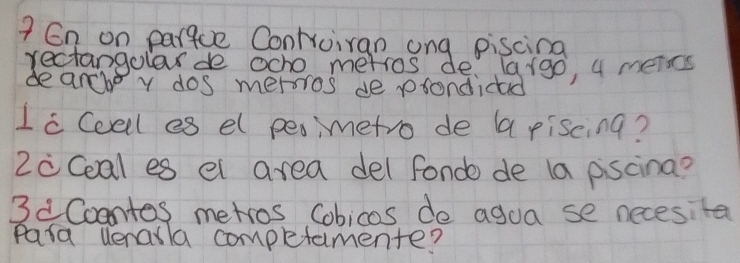 7 En on parque Contruiran ona piscina
rectangular de ocho metros de largo, 4 metros
de ancho y dos metros de profondidad
1 ¿ Cual es el perimetro de la piscina?
2 ¿ Coal es el area del fondo de la piscina?
3 ¿ Coantos metros cobicos de agua se necesita
Para llenarla completamente?